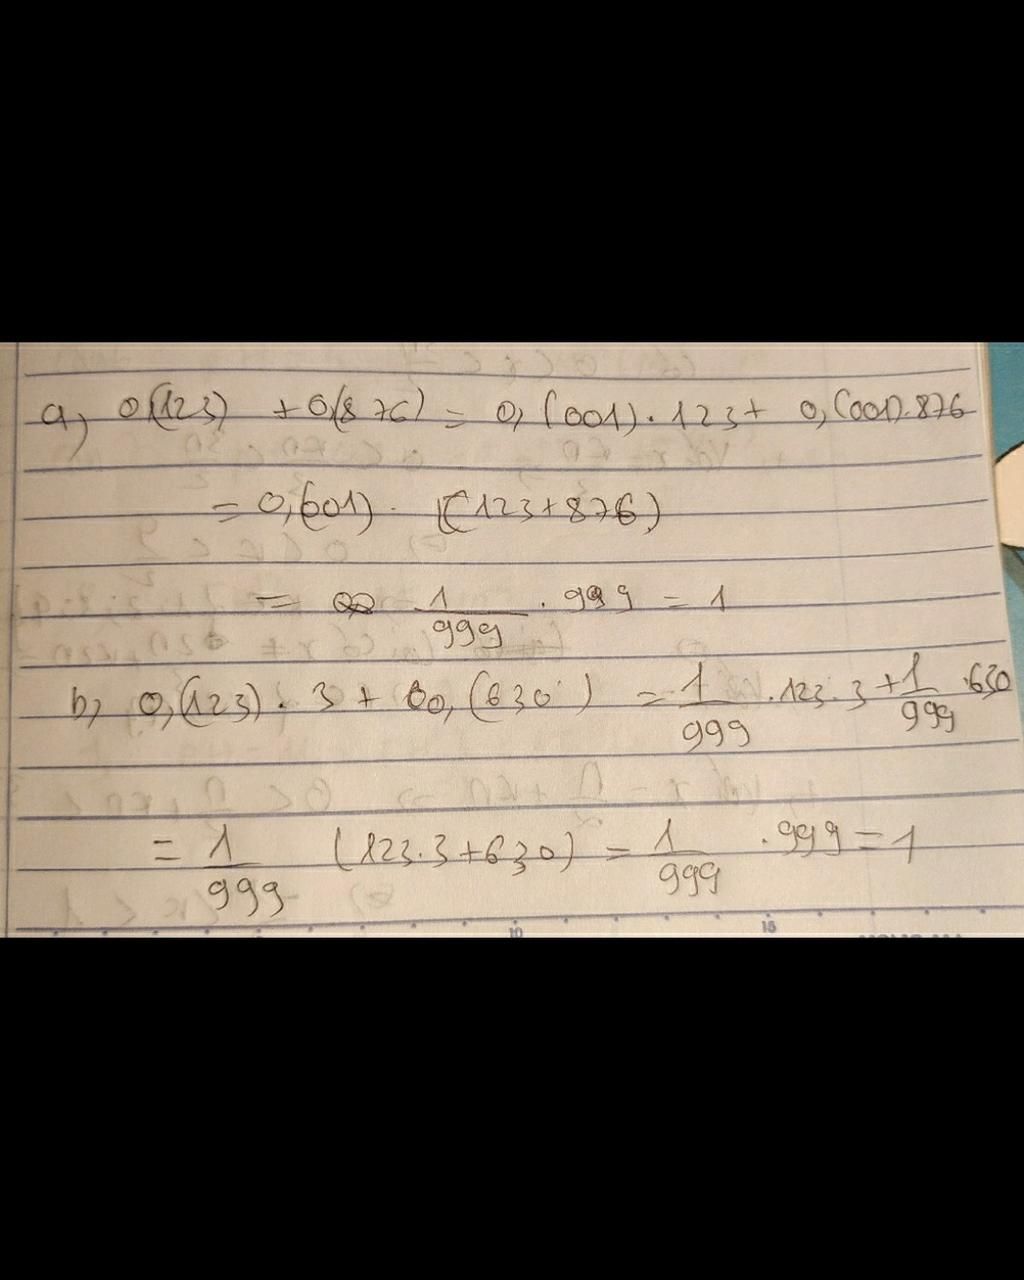 a, 0,(123) + 0,(876) = 0,(001) . 123 + 0,(001).876
= 0,(001) . (123+876)
= 1/999 . 999 = 1
b, 0,(123) . 3 + 0,(630) = 1/999 .123.3 + 1/999 .630
= 1/999 (123.3+630) = 1/999 .999 = 1
10 15